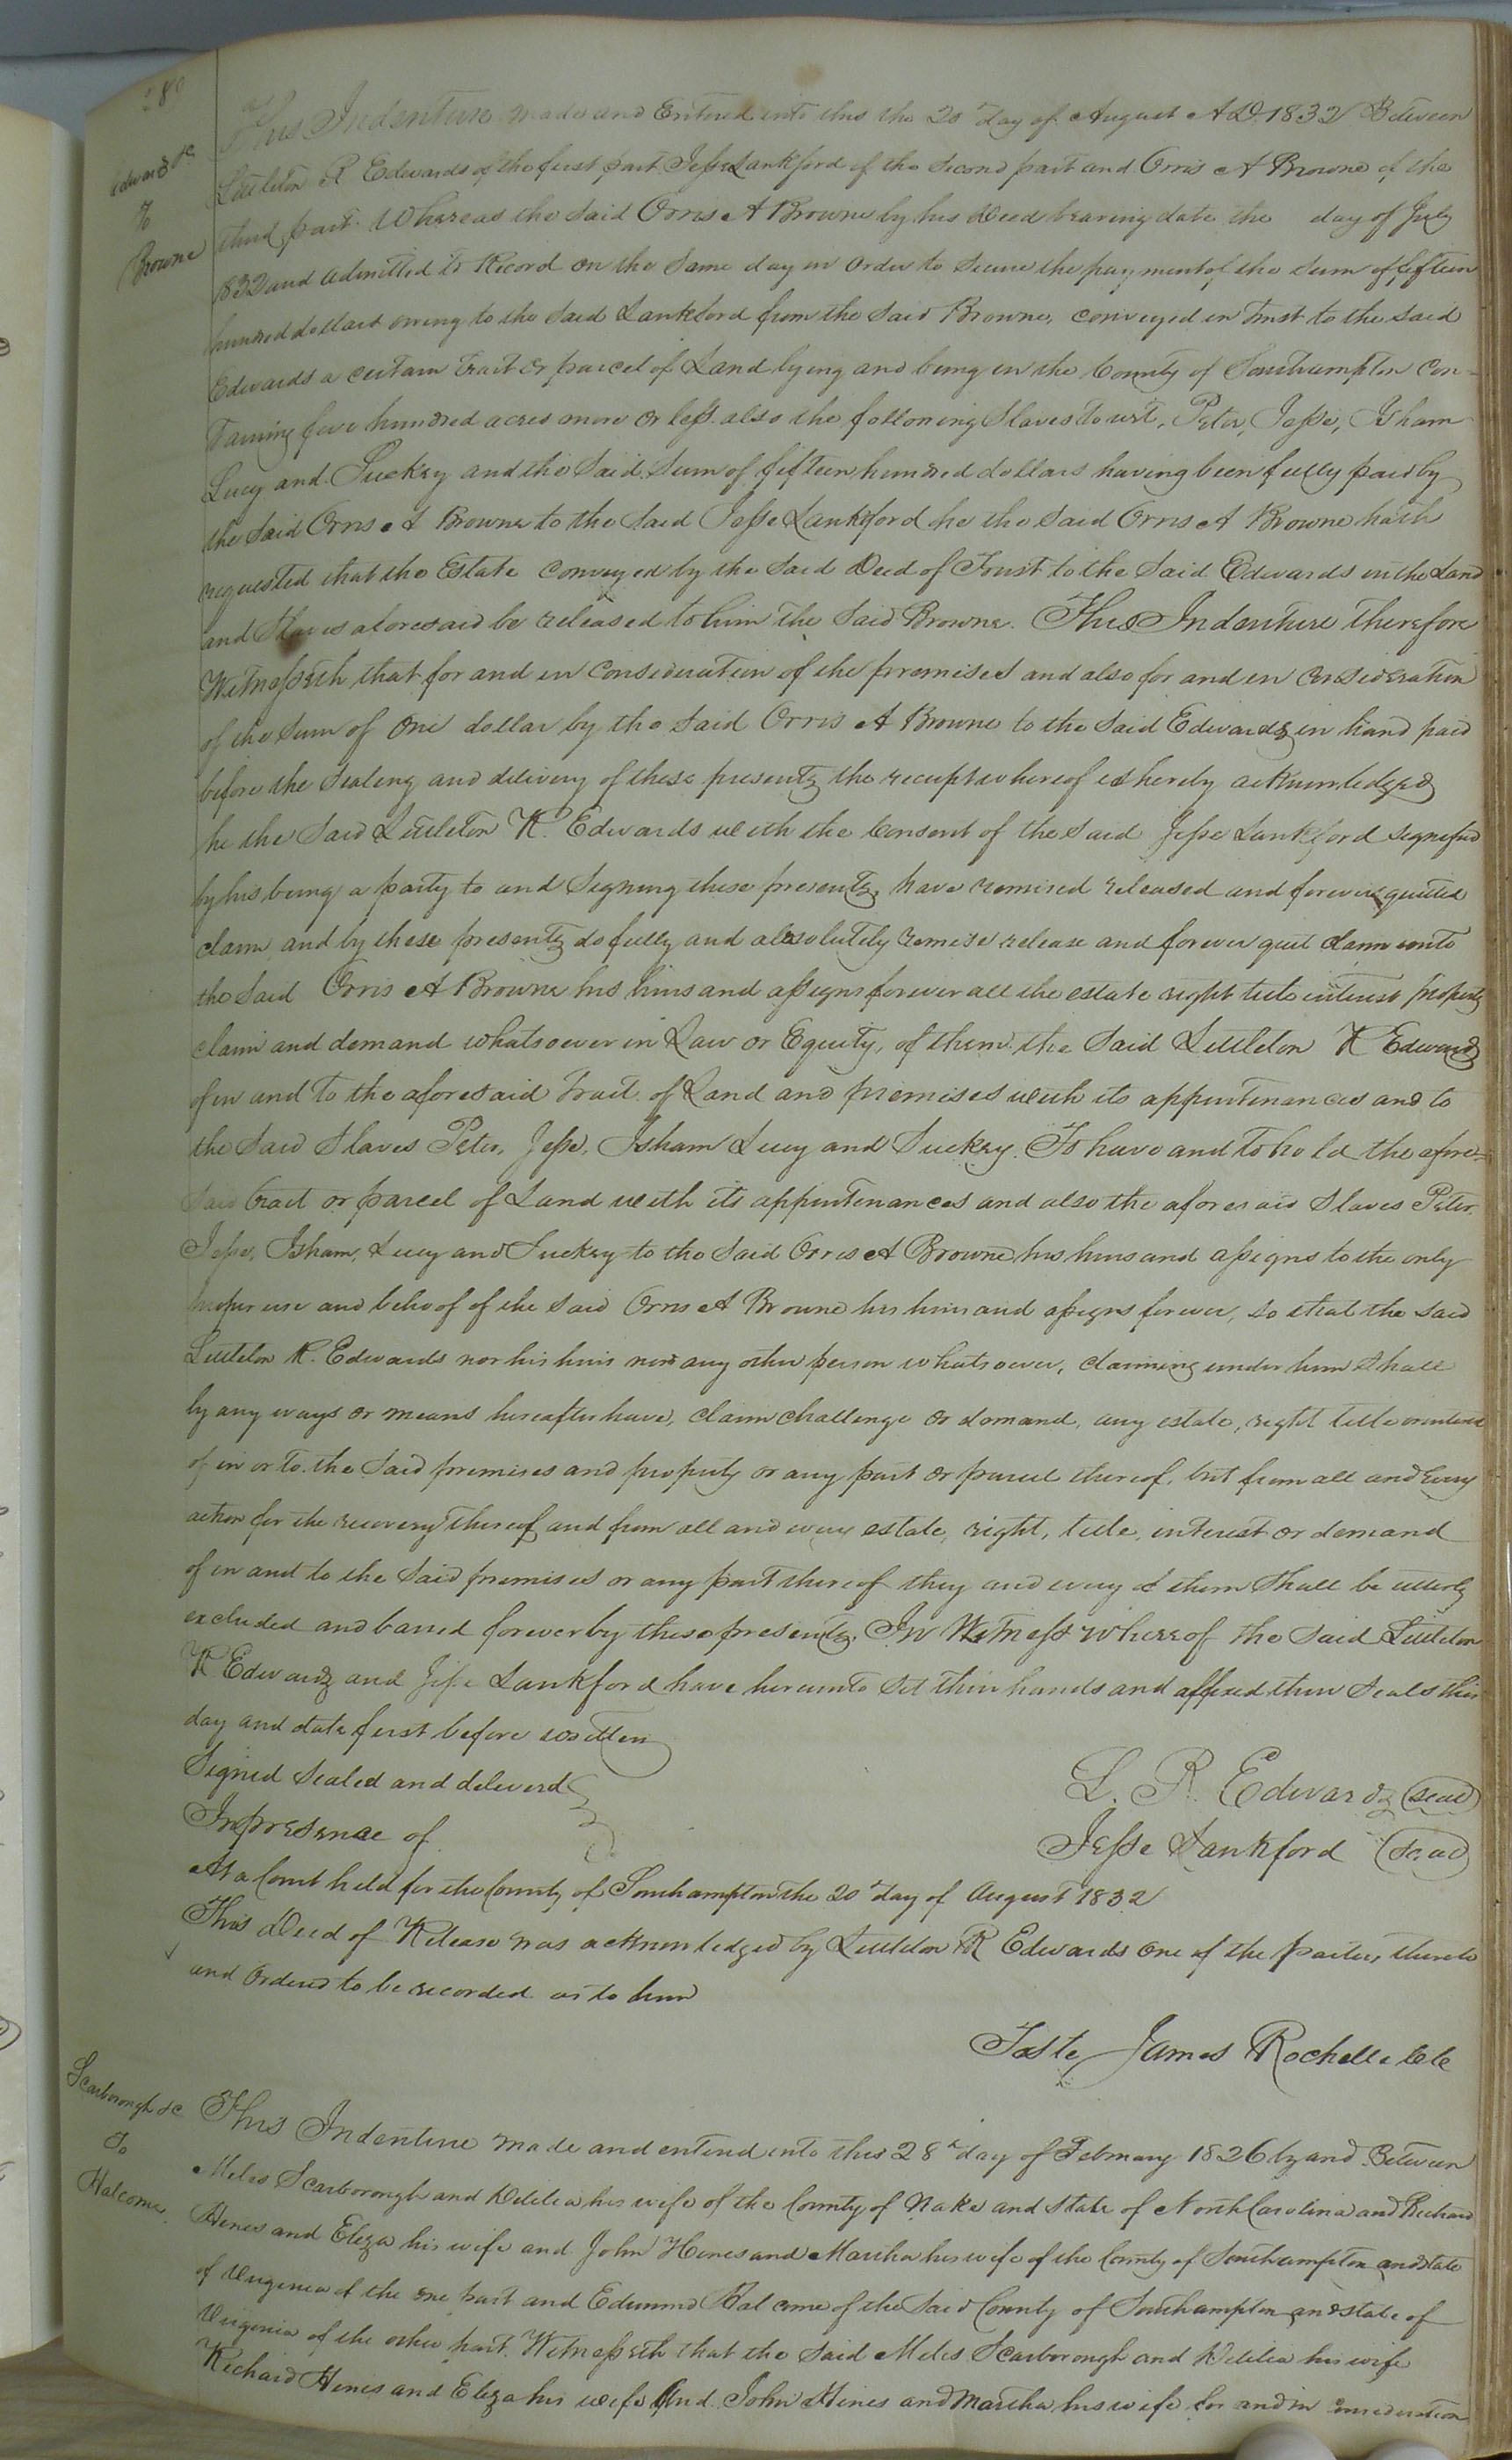 280
Edwards &c
To
Browne
This Indenture made and Entered into this the 20th day of August A D. 1832 Between
Littleton R Edwards of the first part Jesse Lankford of the Second part and Orris A Browne of the
third part. Whereas the Said Orris A Browne by his Deed bearing date the day of July
1832 and admitted to Record on the Same day in order to Secure the payment of the Sum of fifteen
hundred dollars owing to the Said Lankford from the Said Browne, conveyed in Trust to the Said
Edwards a certain tract or parcel of Land lying and being in the County of Southampton Con-
taining five hundred acres more or less also the following Slaves To wit, Peter, Jesse, Isham
Lucy and Suckey and the Said Sum of fifteen hundred dollars having been fully paid by
the Said Orris A Browne to the Said Jesse Lankford he the Said Orris A Browne hath
requested that the Estate conveyed by the Said Deed of Trust to the Said Edwards in the Land
and Slaves aforesaid be released to him the Said Browne. This Indenture therefore
Witnesseth that for and in consideration of the premises and also for and in consideration
of the Sum of One dollar by the Said Orris A Browne to the Said Edwards in hand paid
before the Sealing and delivery of these presents the receipt whereof is hereby acknowledged
he the Said Littleton R. Edwards with the Consent of the Said Jesse Lankford signified
by his being a party to and Signing these presents, have remised released and forever quited
claim, and by these presents do fully and absolutely remise release and forever quit claim unto
the Said Orris A Browne his hirs and assigns forever all the estate right title interest property
claim and demand whatsoever in Law or Equity, of them the Said Littleton R Edwards
of in and To the aforesaid tract of Land and premises with its appurtenances and to
the Said Slaves Peter, Jesse, Isham Lucy and Suckey. To have and to hold the afore-
said tract or parcel of Land with its appurtenances and also the aforesaid Slaves Peter,
Jesse, Isham, Lucy and Suckey to the Said Orris A Browne his hirs and assigns to the only
proper use and behoof of the Said Orris A Browne his hirs and assigns forever, so that the Said
Littleton R. Edwards nor his hirs nor any other person whatsoever, claiming under him Shall
by any ways or means hereafter have, claim challenge or demand, any estate, right title or interest
of in or to the Said premises and property or any part or parcel thereof, but from all and every
action for the recovery thereof and from all and every estate, right, title, interest or demand
of in and to the Said premises or any part thereof they and every of them Shall be utterly
excluded and barred forever by these presents. In Witness whereof the Said Littleton
R Edwards and Jesse Lankford have hereunto Set their hands and affixed their Seals this
day and date first before written
Signed Sealed and deliverd
In presence of
L. R. Edwards (seal)
Jesse Lankford (seal)
At a Court held for the County of Southampton the 20th day of August 1832
This Deed of Release was acknowledged by Littleton R Edwards One of the parties thereto
and Ordered to be recorded as to him
Teste, James Rochelle Clc
Scarborough &c
To
Halcome
This Indenture made and entered into this 28th day of February 1826 by and Between
Miles Scarborough and Delilia his wife of the County of Wake and State of North Carolina and Richard
Hines and Eliza his wife and John Hines and Martha his wife of the County of Southampton and State
of Virginia of the one part and Edmund Halcome of the Said County of Southampton and State of
Virginia of the other part. Witnesseth that the Said Miles Scarborough and Delilia his wife
Richard Hines and Eliza his wife and John Hines and Martha his wife for and in consideration